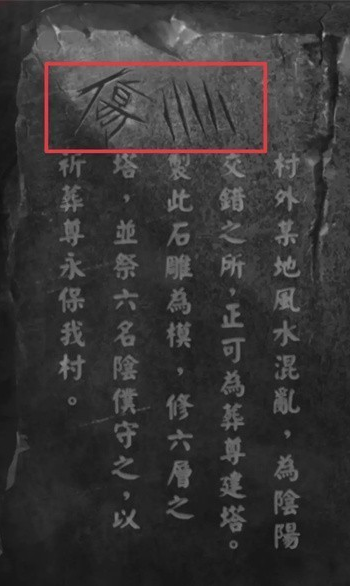 村外某地風水混亂，為陰陽
交錯之所，正可為葬尊建塔。
製此石雕為模，修六層之
塔，並祭六名陰僕守之，以
祈葬尊永保我村。